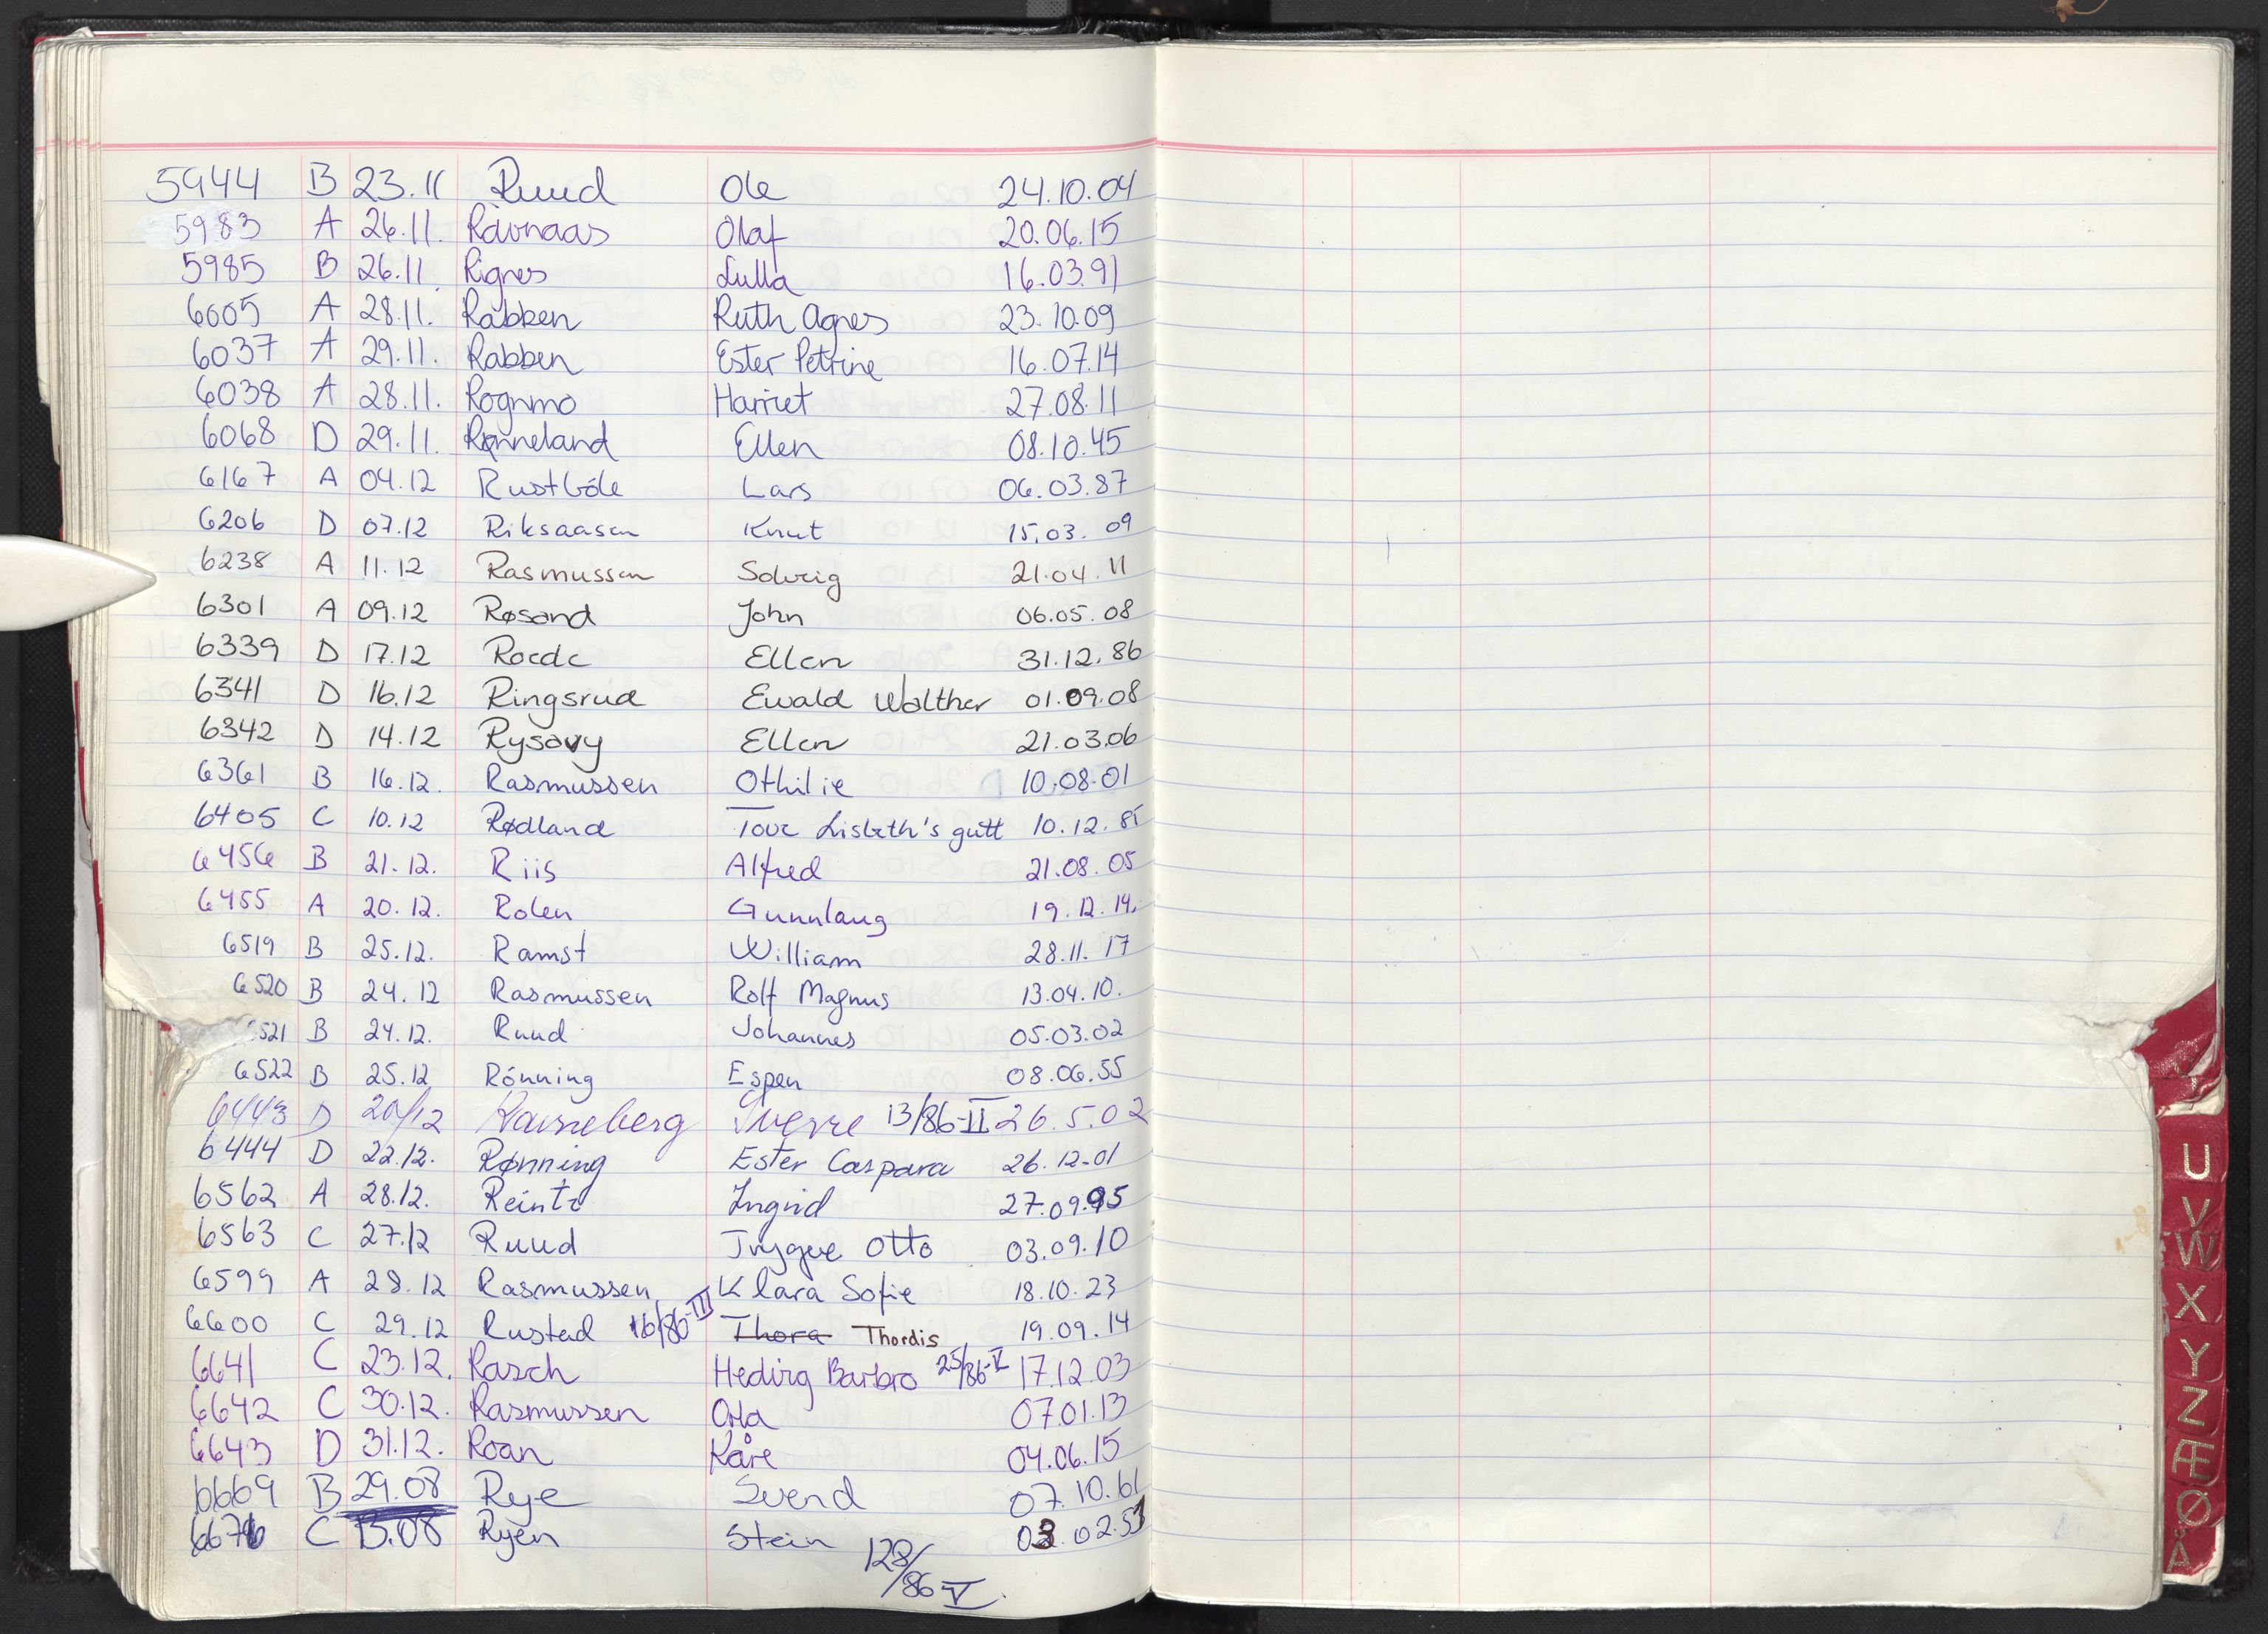 5944 B 23.11 Ruud Ole 24.10.04
5983 A 26.11. Råvnaas Olaf 20.06.15
5985 B 26.11. Rignes Lulla 16.03.91
6005 A 28.11. Rabben Ruth Agnes 23.10.09
6037 A 29.11. Rabben Ester Petrine 16.07.14
6038 A 28.11. Rognmo Harriet 27.08.11
6068 D 29.11. Rønneland Ellen 08.10.45
6167 A 04.12 Rustbóle Lars 06.03.87
6206 D 07.12 Riksaasen Knut 15.03.09
6238 A 11.12 Rasmussen Solveig 21.04.11
6301 A 09.12 Røsand John 06.05.08
6339 D 17.12 Roede Ellen 31.12.86
6341 D 16.12 Ringsrud Ewald Walther 01.09.08
6342 D 14.12 Rysavy Ellen 21.03.06
6361 B 16.12. Rasmussen Othilie 10.08.01
6405 C 10.12 Rødland Tove Lisbeth's gutt 10.12.85
6456 B 21.12. Riis Alfred 21.08.05
6455 A 20.12. Rolen Gunnlaug 19.12.14.
6519 B 25.12. Ramst William 28.11.17
6520 B 24.12 Rasmussen Rolf Magnus 13.04.10.
6521 B 24.12. Ruud Johannes 05.03.02
6522 B 25.12 Rónning Espen 08.06.55
6443 D 20/12 Ravneberg Sverre 13/86-II 26.5.02
6444 D 22.12. Rønning Ester Caspara 26.12-01
6562 A 28.12. Reintz Ingrid 27.09.95
6563 C 27.12 Ruud Trygve Otto 03.09.10
6599 A 28.12 Rasmussen Klara Sofie 18.10.23
6600 C 29.12 Rustad 16/86-III Thora Thordis 19.09.14
6641 C 23.12. Rasch Hedvig Barbro 25/86-V 17.12.03
6642 C 30.12. Rasmussen Orla 07.01.13
6643 D 31.12. Roan Kåre 04.06.15
6669 B 29.08 Rye Svend 07.10.61
6676 C 13.08 Ryen Stein 03.02.51
128/86 V
U
V
W
X
Y
Z
Æ
Ø
Å